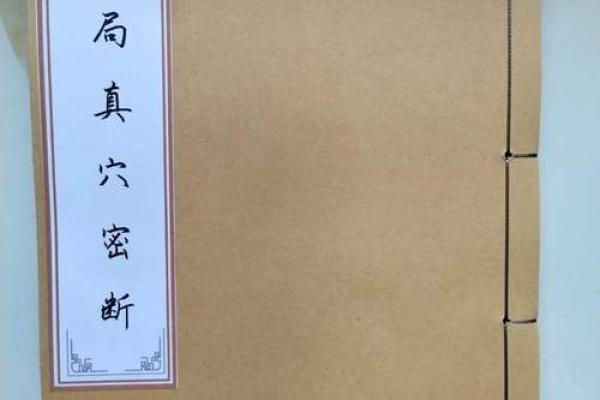 局真穴密断